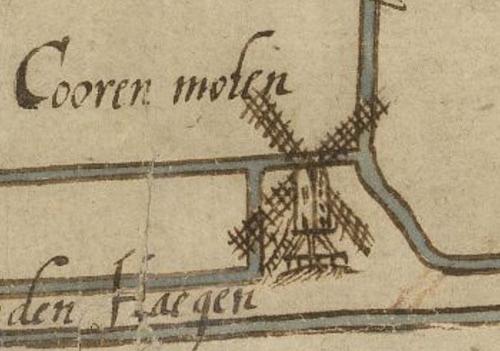 Cooren molen
den Haegen